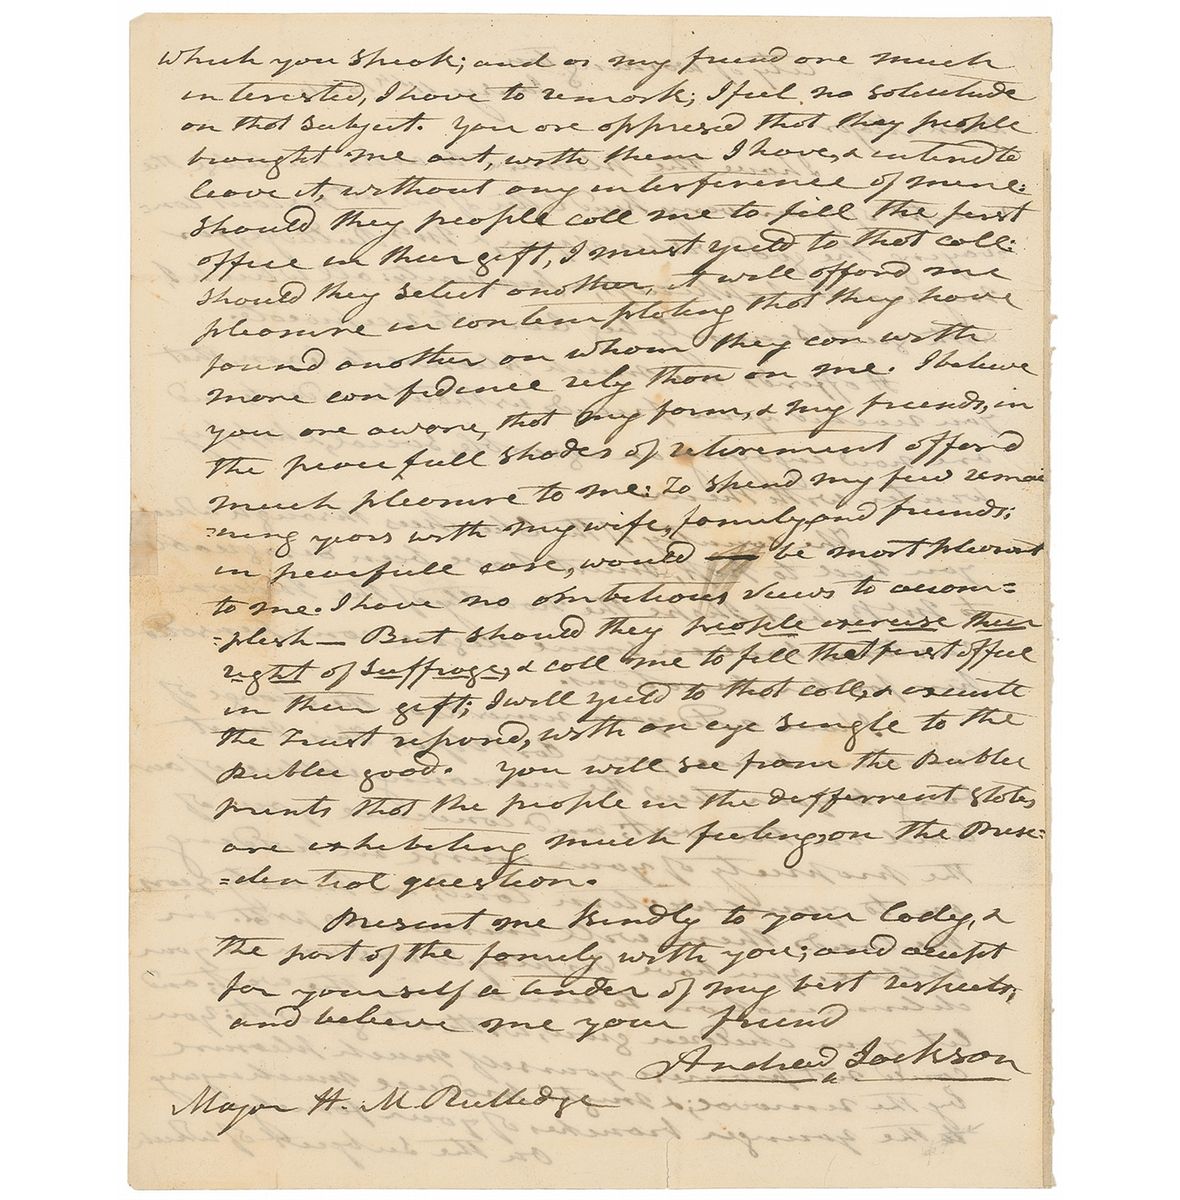 which you speak; and as my friend are much
interested, I have to remark; I feel no solicitude
on that subject. You are apprised that they people
brought me out, with them I have, & intend to
leave it, without any interference of mine:
should they people call me to fill the first
office in their gift, I must yield to that call:
should they select another, it will afford me
pleasure in contemplating that they have
found another on whom they can with
more confidence rely than on me. I believe
you are aware, that my farm, & my friends, in
the peacefull shades of retirement afford
much pleasure to me: To spend my few remai
=ning years with my wife, family, and friends;
in peacefull ease, would be most pleasant
to me. I have no ambitious views to accom=
=plish— But should they people exercise their
right of suffrage, & call me to fill that first office
in their gift; I will yield to that call, & execute
the Trust reposed, with an eye single to the
Public good. You will see from the Public
prints that the people in the different states
are exhibiting much feeling, on the Presi=
=dential question.
Present me kindly to your Lady, &
the part of the family with you; and accept
for yourself a tender of my best respects,
and believe me your friend
Andrew Jackson
Major H. M Rutledge